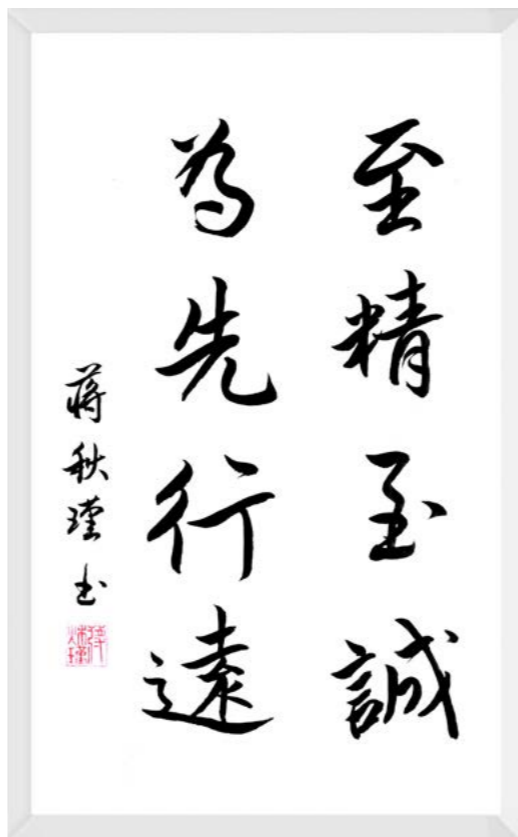 至精至誠
為先行遠
蔣秋瑾书